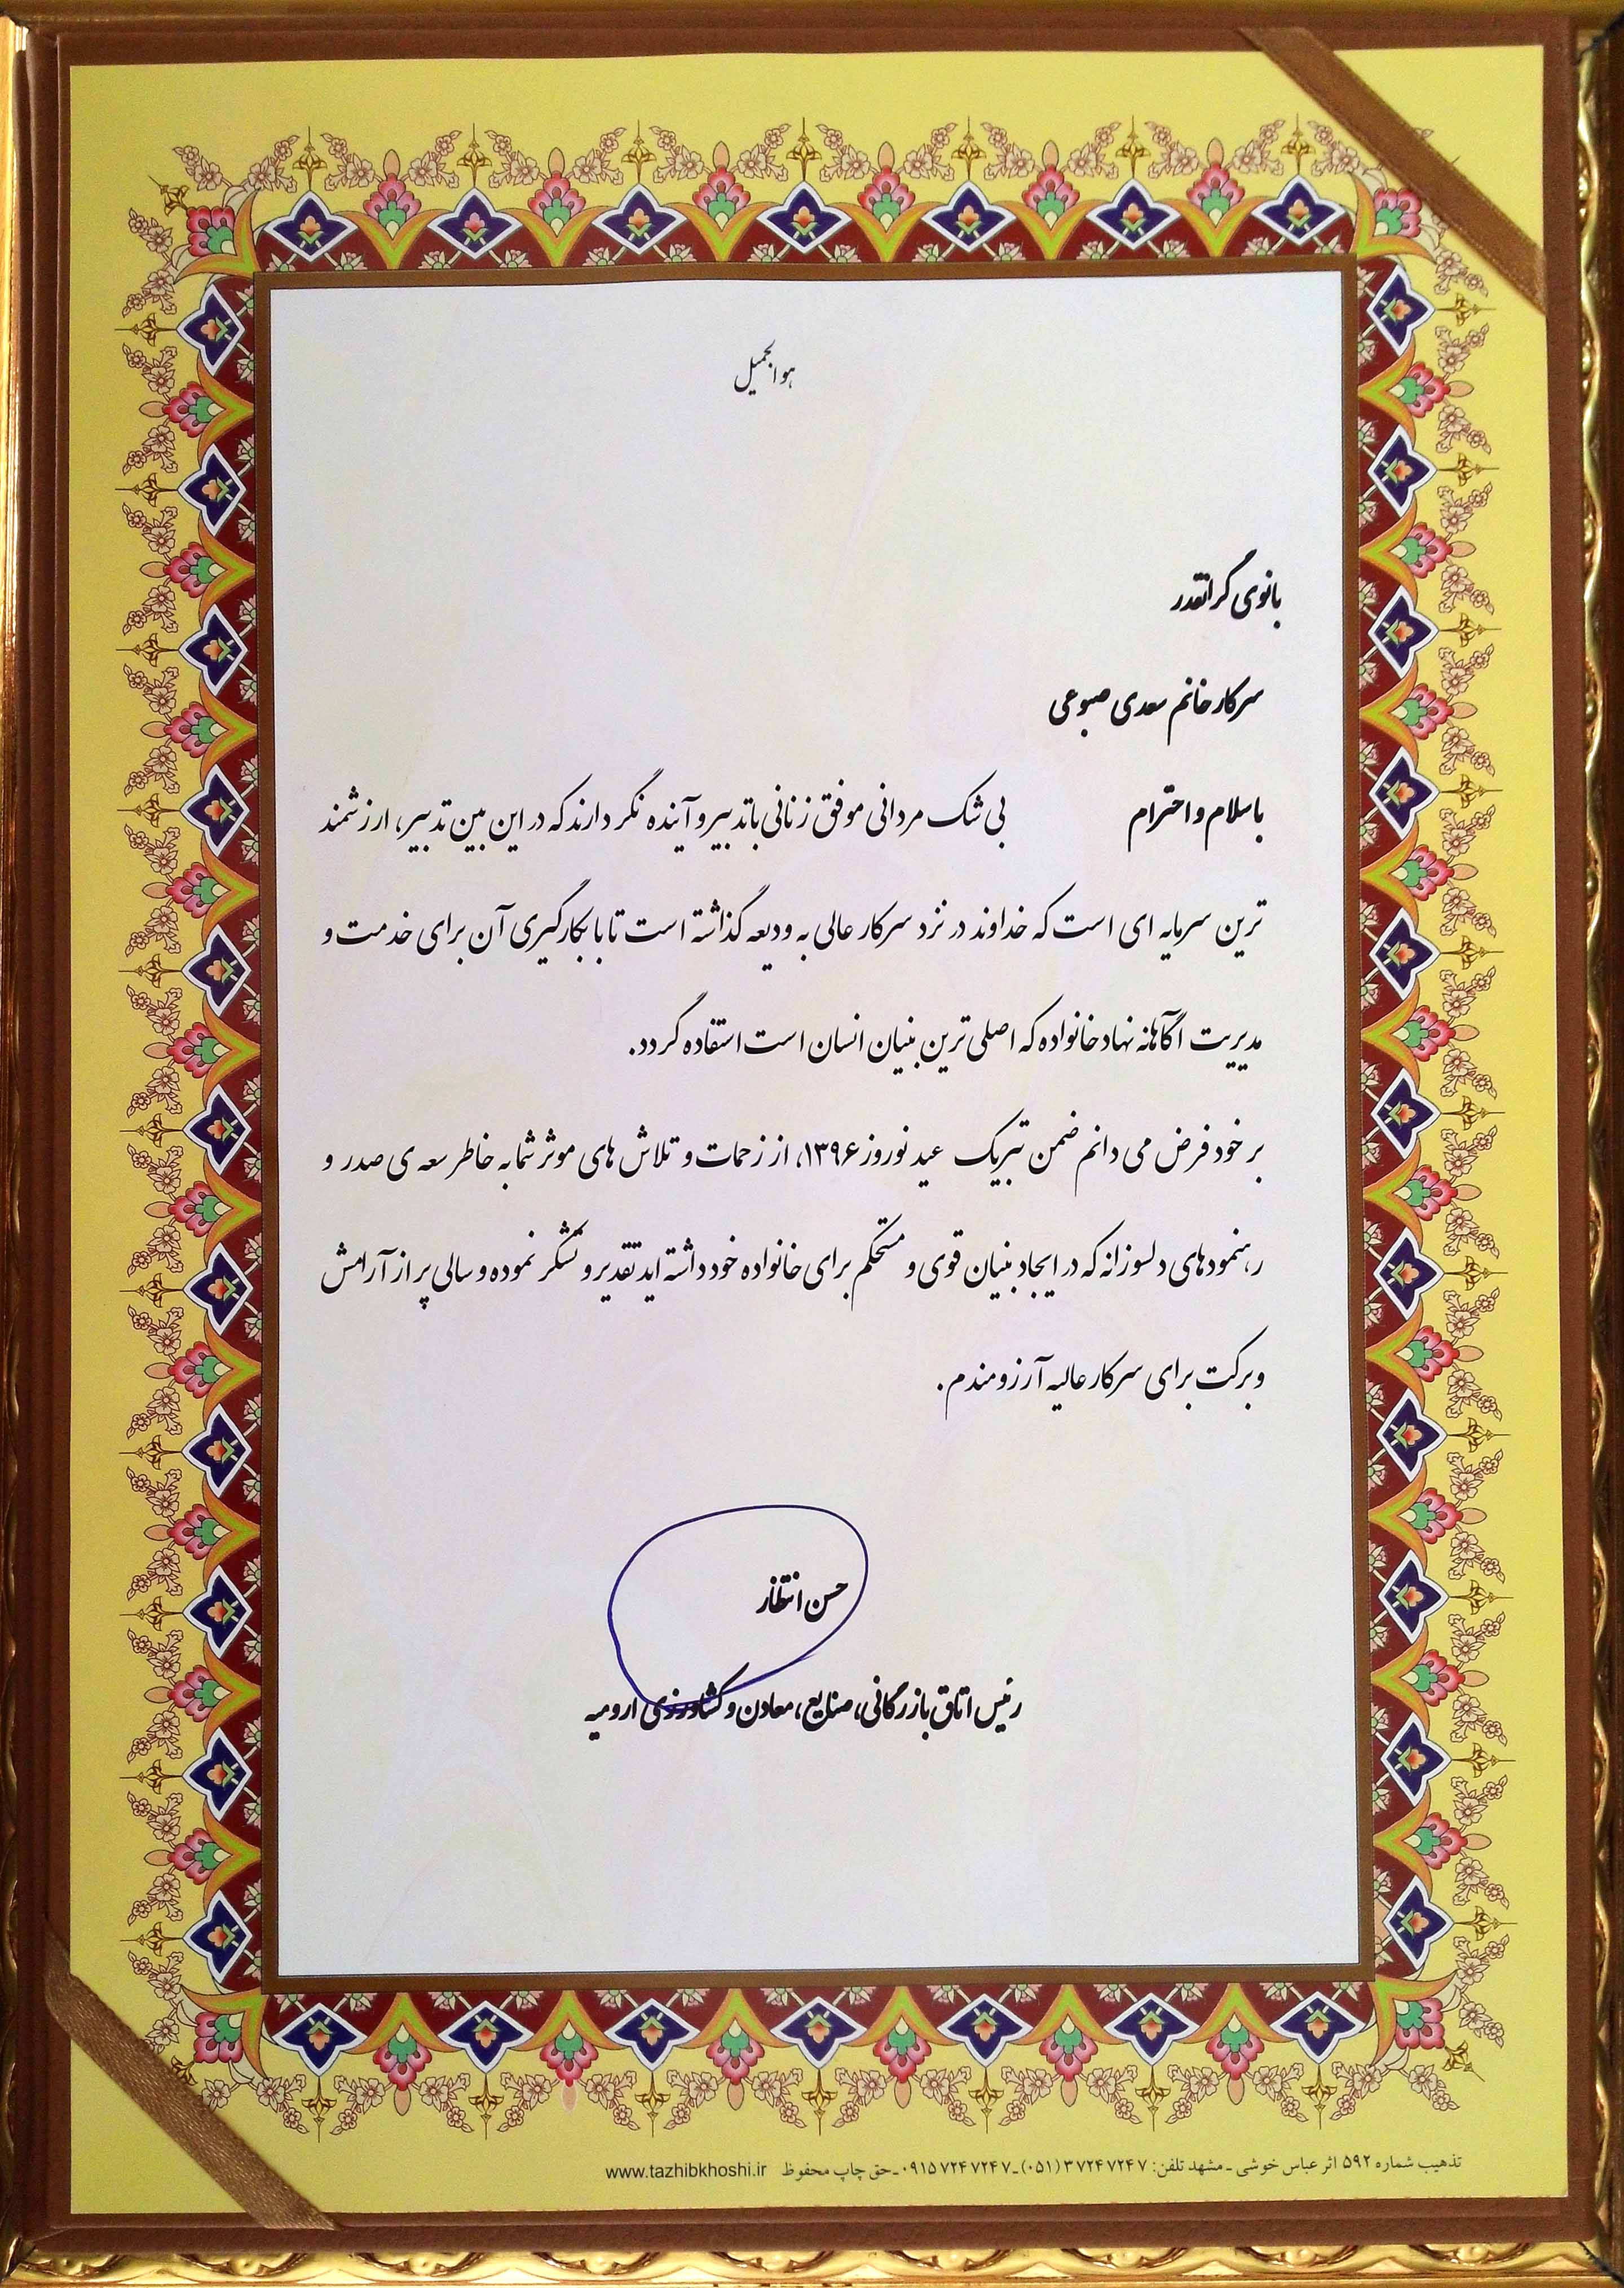 هوالجمیل
بانوی گرانقدر
سرکار خانم سعدی صبوعی
باسلام و احترام بی شک مردانی موفق زنانی باتدبیر و آینده نگر دارند که در این بین تدبیر، ارزشمند
ترین سرمایه ای است که خداوند در نزد سرکار عالی به ودیعه گذاشته است تا با بکارگیری آن برای خدمت و
مدیریت آگاهانه نهاد خانواده که اصلی ترین بنیان انسان است استفاده گردد.
بر خود فرض می دانم ضمن تبریک عید نوروز ۱۳۹۶، از زحمات و تلاش های موثر شما به خاطر سعه ی صدر و
رهنمودهای دلسوزانه که در ایجاد بنیان قوی و مستحکم برای خانواده خود داشته اید تقدیر و تشکر نموده و سالی پر از آرامش
و برکت برای سرکار عالیه آرزومندم.
حسن انتظار
رئیس اتاق بازرگانی، صنایع، معادن و کشاورزی ارومیه
تذهیب شماره ۵۹۲ اثر عباس خوشی ـ مشهد تلفن: ۳۷۲۴۷۲۴۷ (۰۵۱) ـ ۰۹۱۵۷۲۴۷۲۴۷ ـ حق چاپ محفوظ www.tazhibkhoshi.ir